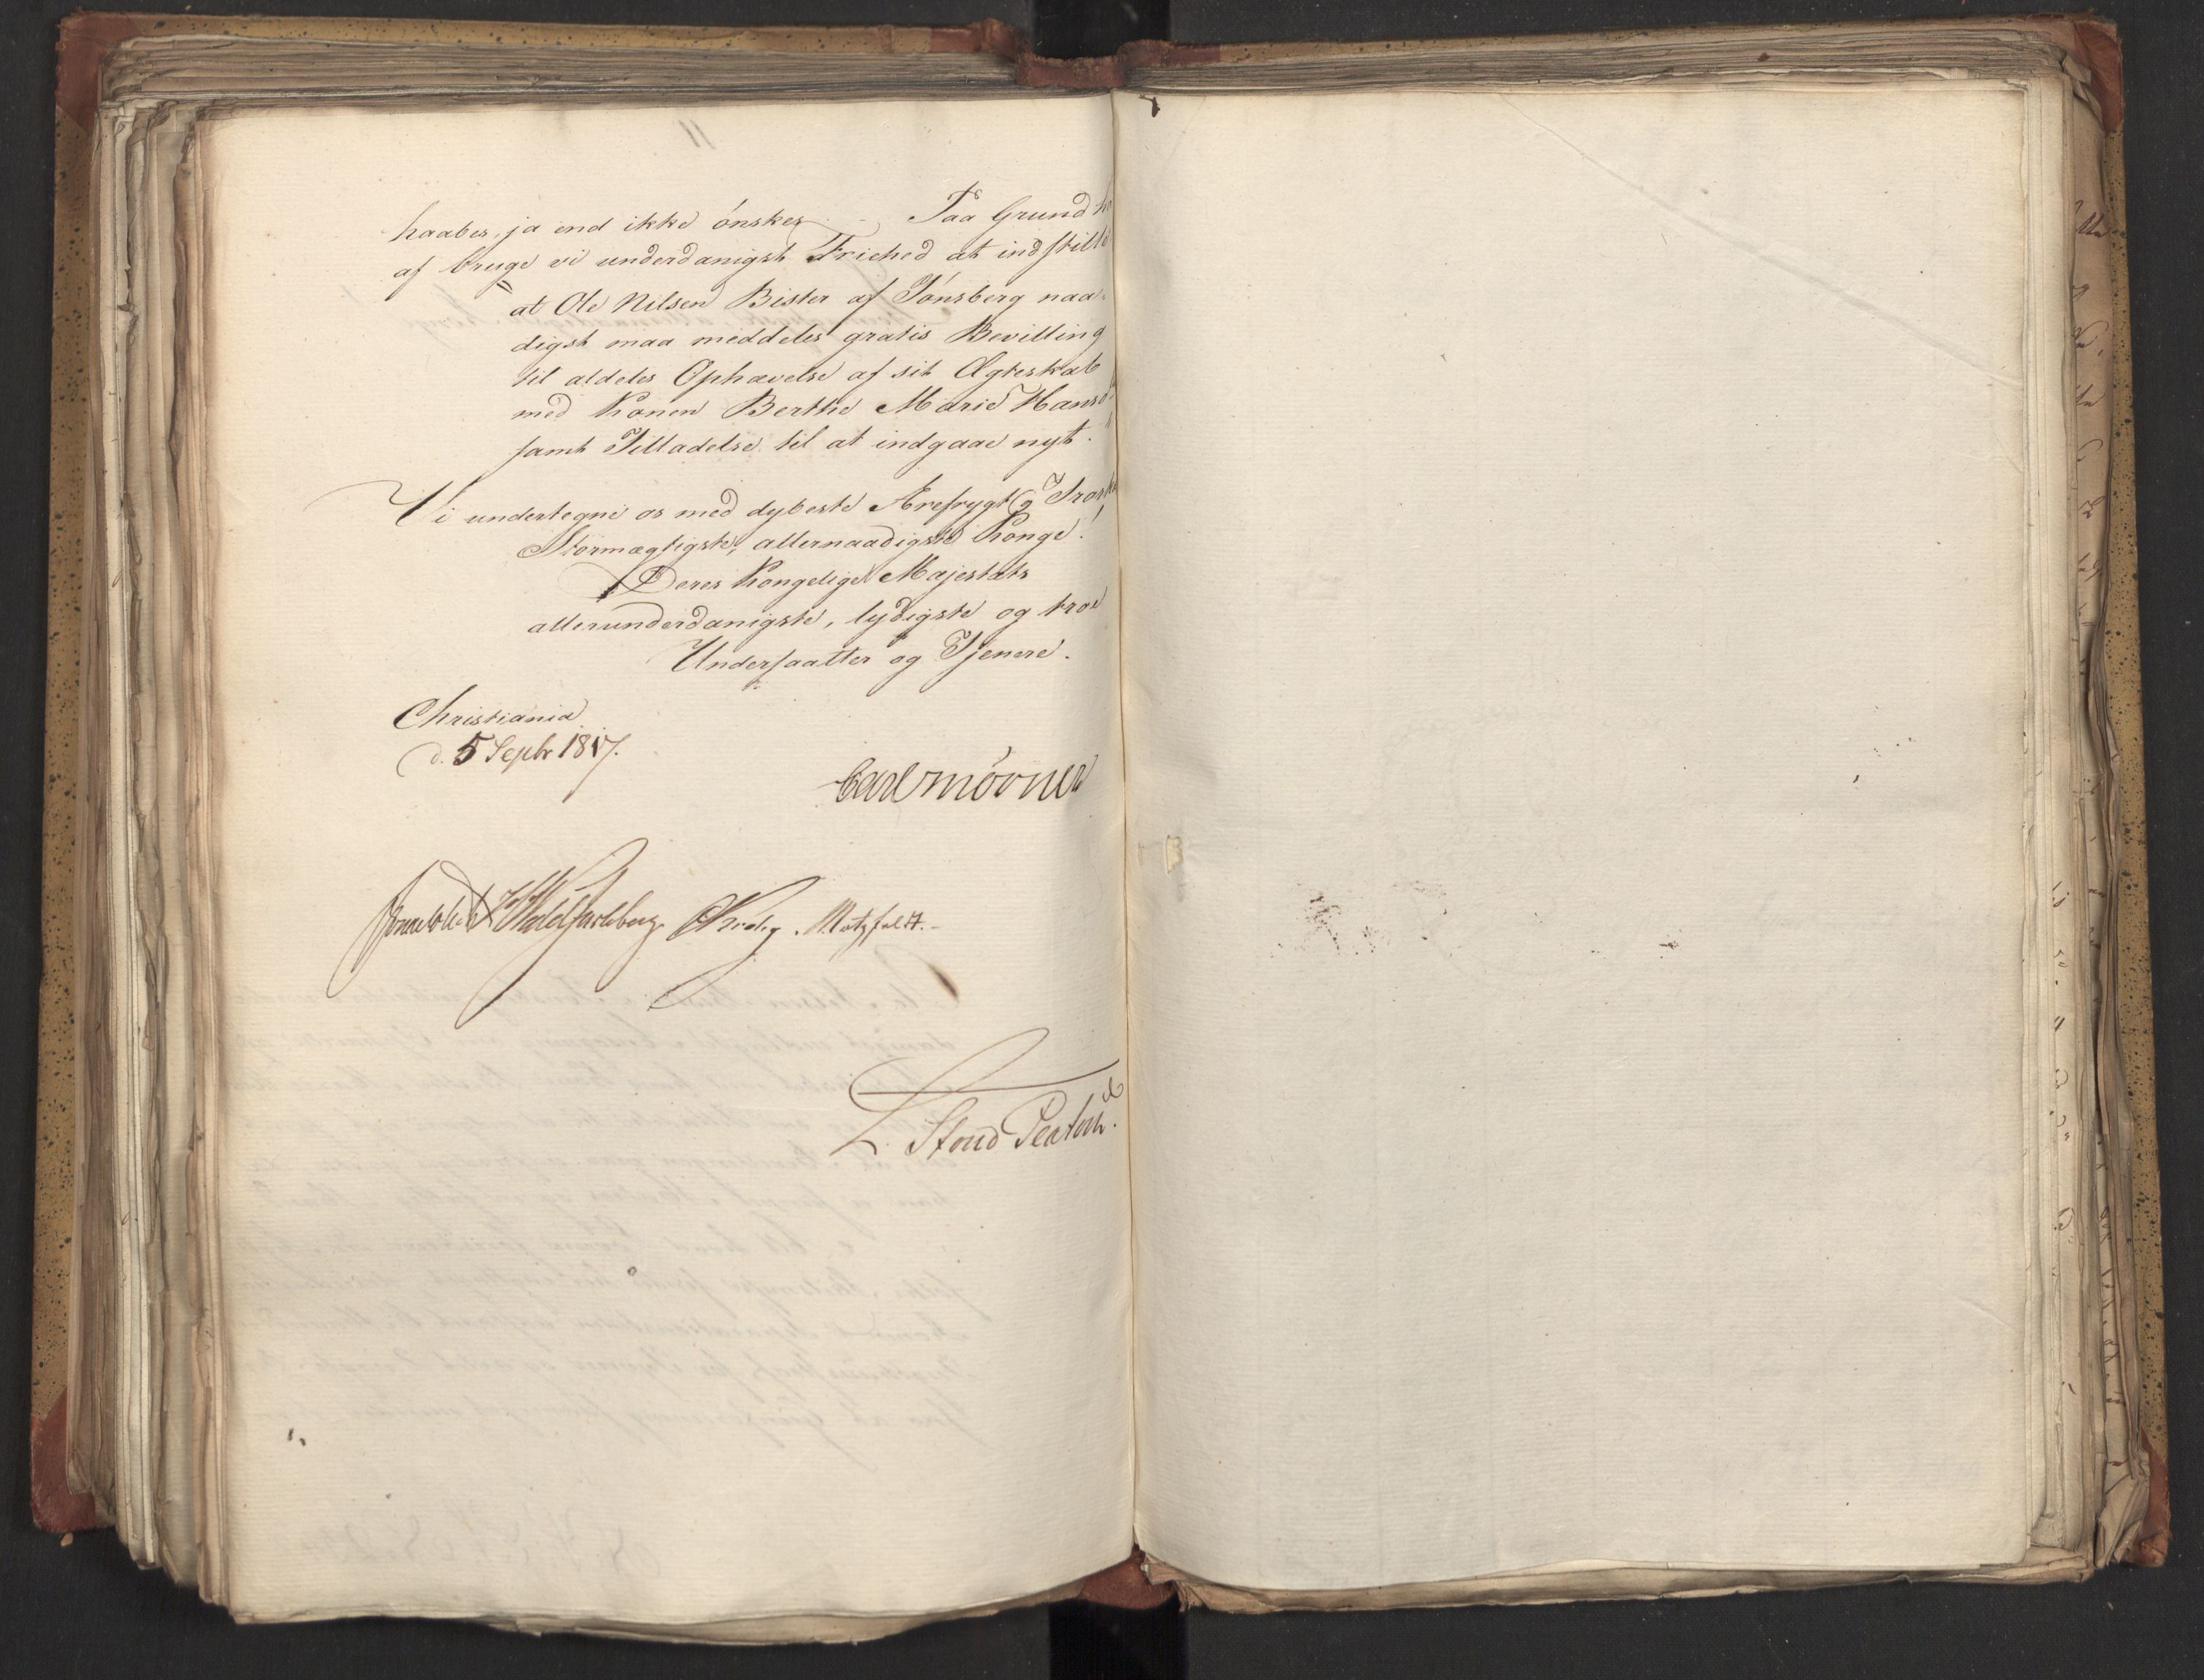 haabes, ja end ikke ónskes. - Paa Grund
af bruge vi underdanigst Friehed at indstille
at Ole Nilsen Bister af Tónsberg naa-
digst maa meddeles gratis Bevilling
til aldeles Ophævelse af sit Ægteskab
med Konen Berthe Marie Hansd
samt Tilladelse til at indgaae nyt.
Vi undertegne os med dybeste Ærefrygt og
Stormægtigste, allernaadigste Konge!
Deres Kongelige Majestæts
allerunderdanigste, lydigste og troe
Undersaatter og Tjenere.
Christiania
d. 5 Septr 1817.
Carl Mörner
Sommerhielm Wedel Jarlsberg Krog. Motzfeldt.-
L. Stoud Platou